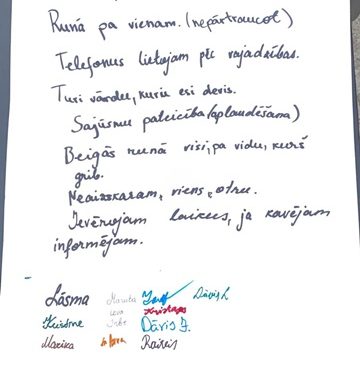 Runā pa vienam. (nepārtraucot)
Telefonus lietojam pēc vajadzības.
Turi vārdu, kuru esi devis.
Sajūsmu pateicība (aplaudēšana)
Beigās runā visi, pa vidu, kurš
grib.
Neaizskaram, viens, otru.
Ievērojam laikus, ja kavējam
informējam.
Lāsma Dāvis L
Kristaps
Kristīne Dāvis J.
Marika Raivis